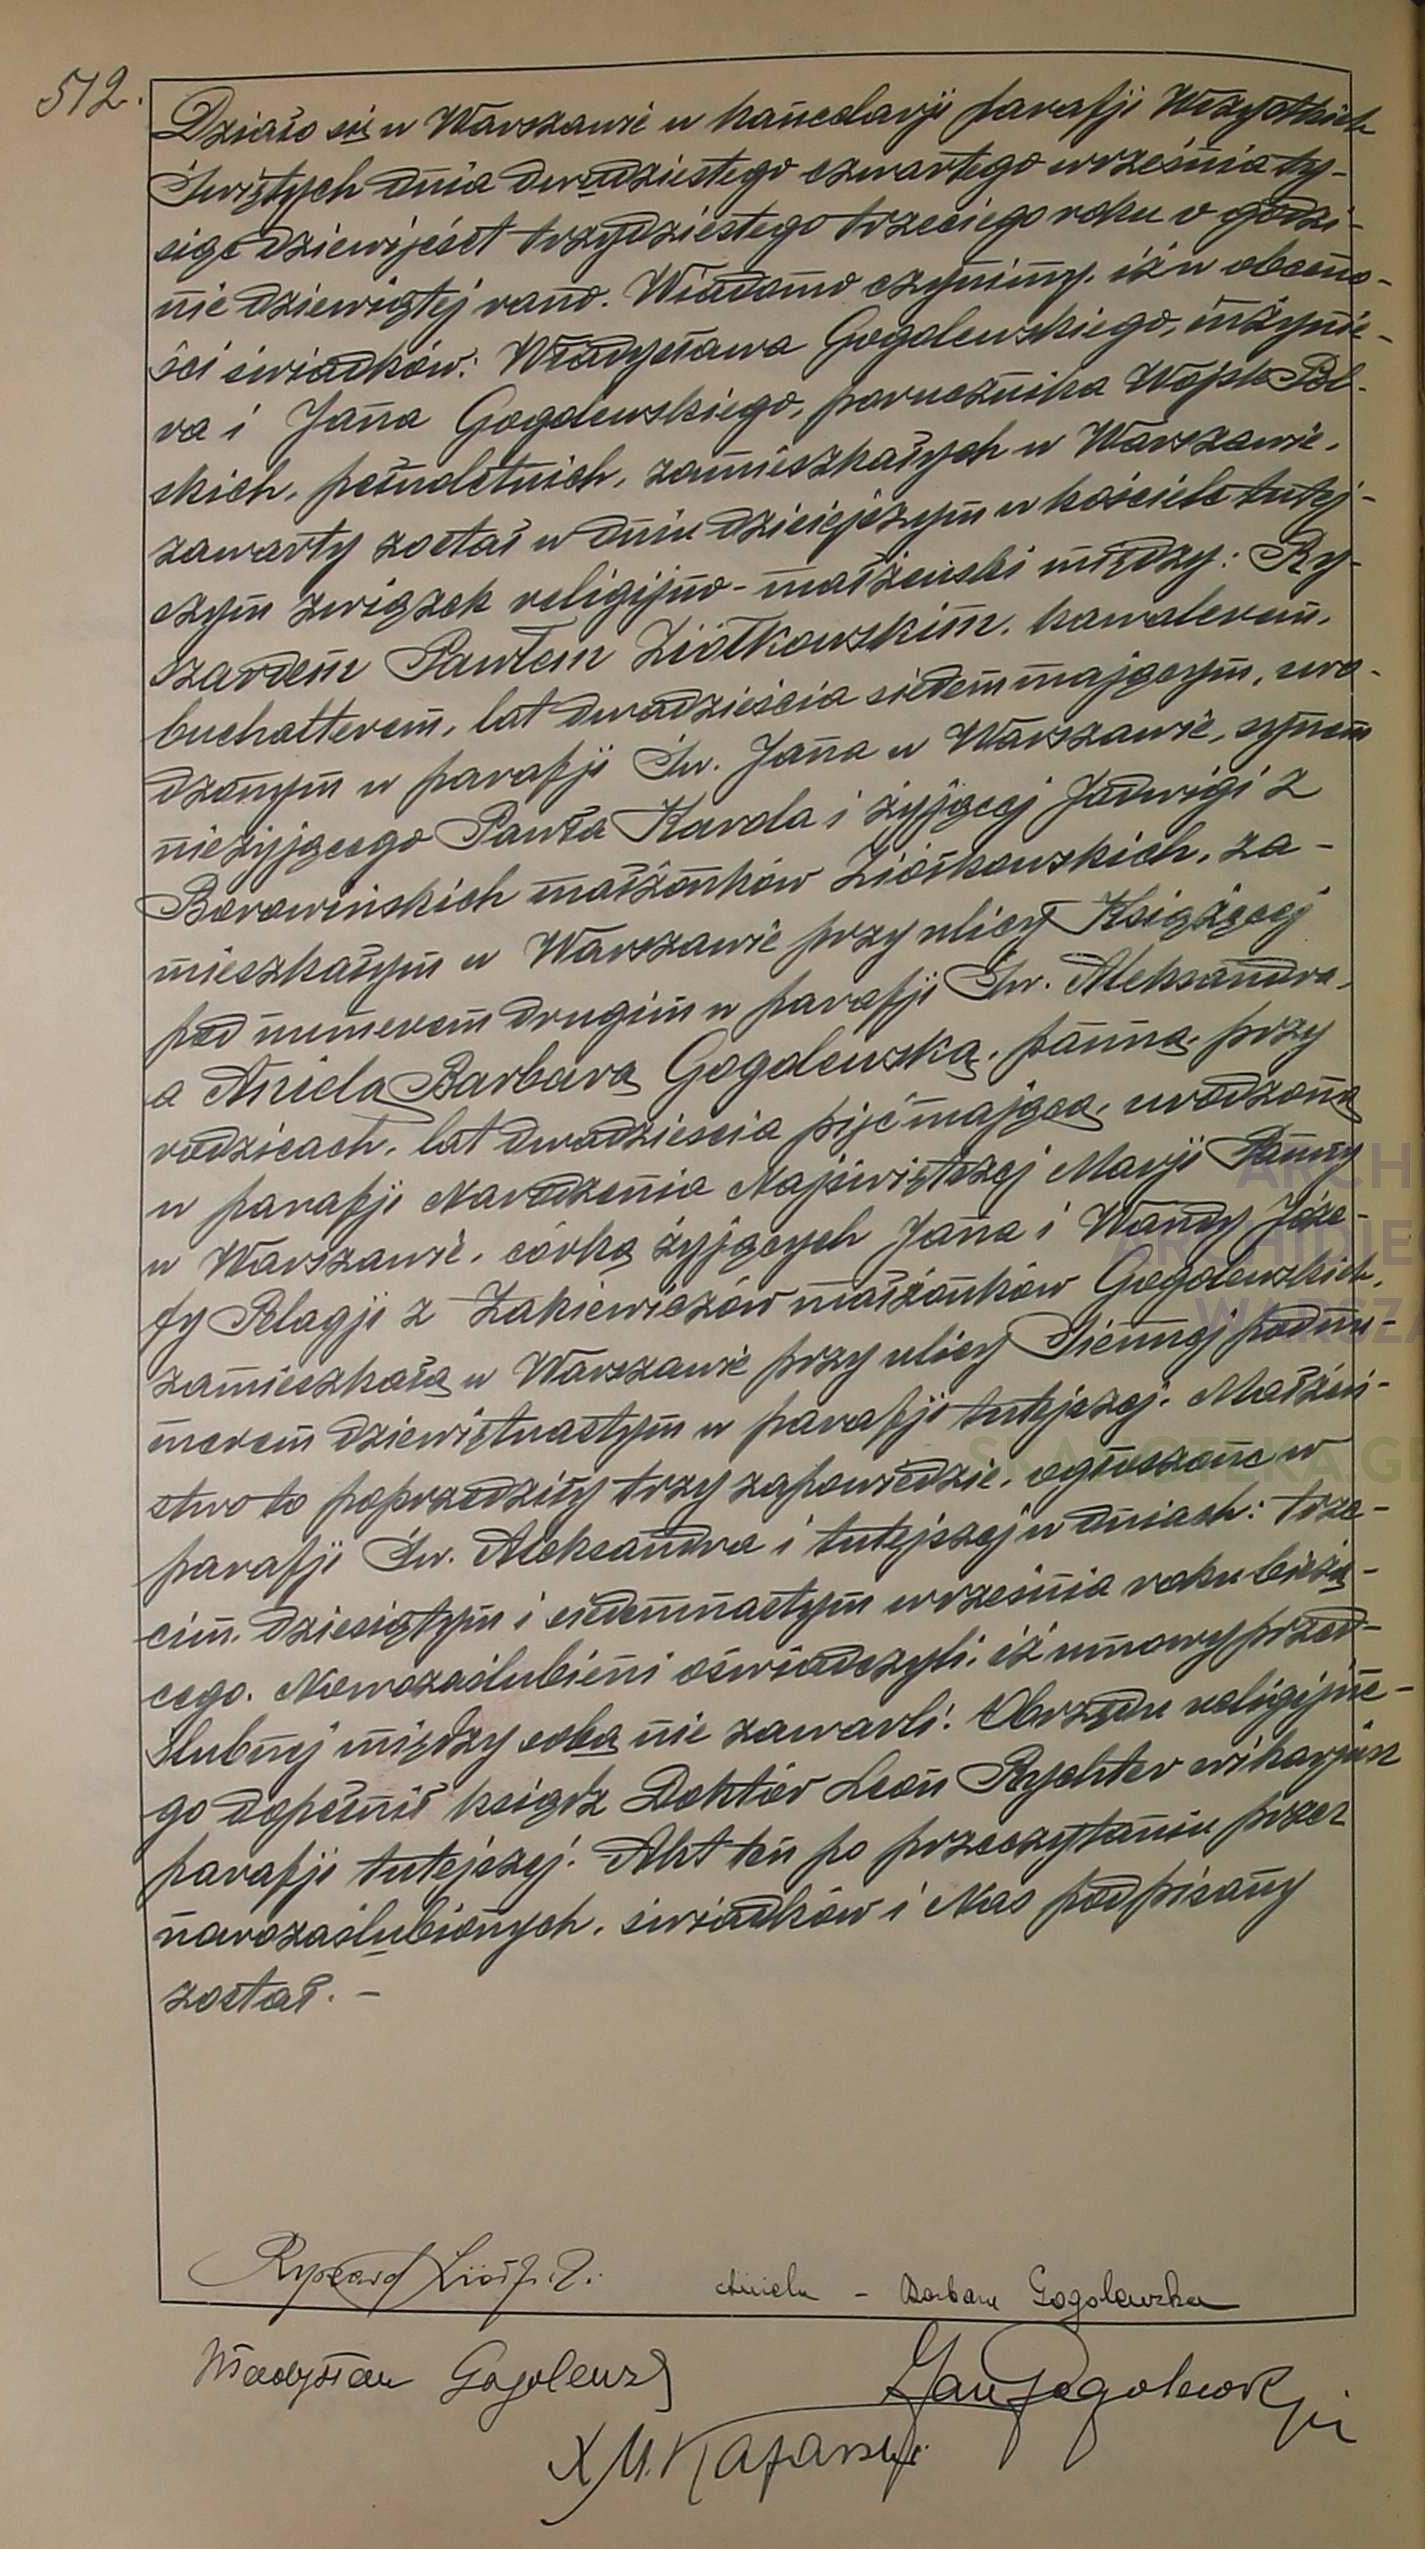 512.
Działo się w Warszawie w kancelarji parafji Wszystkich
Świętych dnia dwudziestego czwartego września ty-
siąc dziewięćset trzydziestego trzeciego roku o godzi-
nie dziewiątej rano. Wiadomo czynimy, iż w obecno-
ści świadków: Władysława Gogolewskiego, inżynie-
ra i Jana Gogolewskiego, porucznika Wojsk Pol-
skich, pełnoletnich, zamieszkałych w Warszawie,
zawarty został w dniu dzisiejszym w kościele tutej-
szym związek religijno-małżeński między: Ry-
szardem Pawłem Ziółkowskim, kawalerem,
buchalterem, lat dwadzieścia siedem mającym, uro-
dzonym w parafji Św. Jana w Warszawie, synem
nieżyjącego Pawła Karola i żyjącej Jadwigi z
Borowińskich małżonków Ziółkowskich, za-
mieszkałym w Warszawie przy ulicy Książęcej
pod numerem drugim w parafji Św. Aleksandra,
a Anielą Barbarą Gogolewską, panną, przy
rodzicach, lat dwadzieścia pięć mającą, urodzoną
w parafji Narodzenia Najświętszej Marji Panny
w Warszawie, córką żyjących Jana i Wandy Józe-
fy Pelagji z Zakiewiczów małżonków Gogolewskich,
zamieszkałą w Warszawie przy ulicy Siennej pod nu-
merem dziewiętnastym w parafji tutejszej. Małżeń-
stwo to poprzedziły trzy zapowiedzie, ogłoszone w
parafji Św. Aleksandra i tutejszej w dniach: trze-
cim, dziesiątym i siedemnastym września roku bieżą-
cego. Nowozaślubieni oświadczyli, iż umowy przed-
ślubnej między sobą nie zawarli. Obrzędu religijne-
go dopełnił ksiądz Doktór Leon Rychter wikarjusz
parafji tutejszej. Akt ten po przeczytaniu przez
nowozaślubionych, świadków i Nas podpisany
został. –
Ryszard
Aniela – Barbara Gogolewska
Władysław Gogolewski
Jan Gogolewski
X M.
ARCHI
ARCHIDIE
WARSZA
SKANOTEKA GE